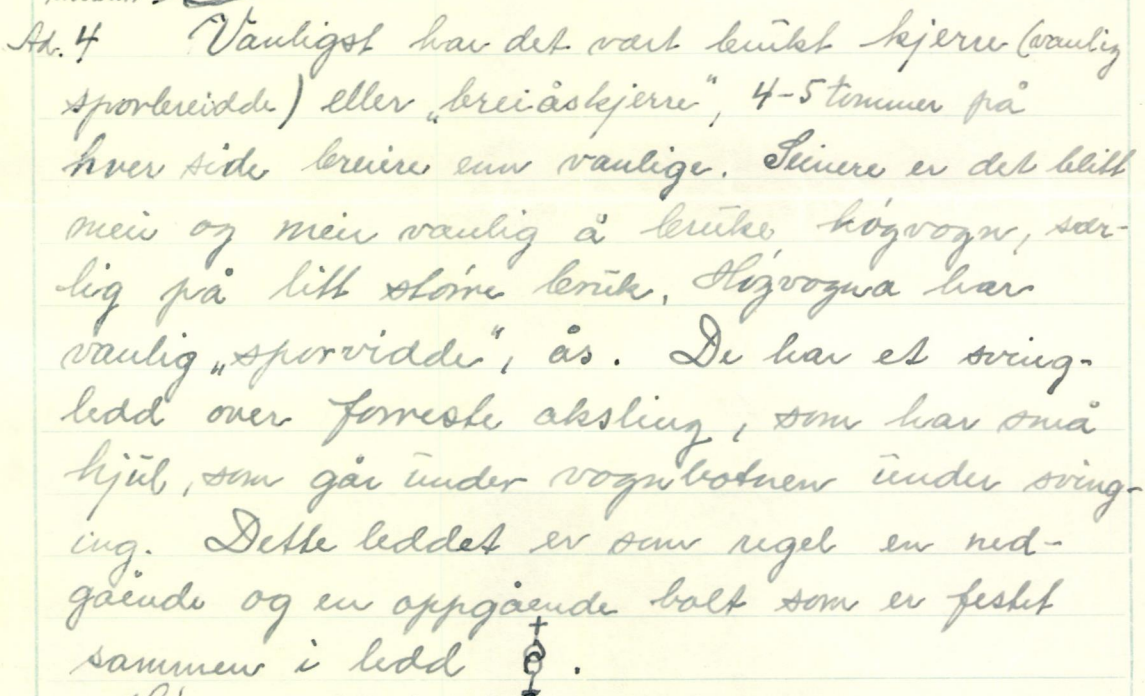 Ad. 4 Vanligst har det vært brukt kjerre (vanlig
sporbreidde) eller „breiåskjerre", 4-5 tommer på
hver side breiere enn vanlige. Seinere er det blitt
meir og meir vanlig å bruke høgvogn, sær-
lig på litt større bruk. Høgvogna har
vanlig „sporvidde", ås. De har et sving-
ledd over forreste aksling, som har små
hjul, som går under vognbotnen under sving-
ing. Dette leddet er som regel en ned-
gående og en oppgående bolt som er festet
sammen i ledd .